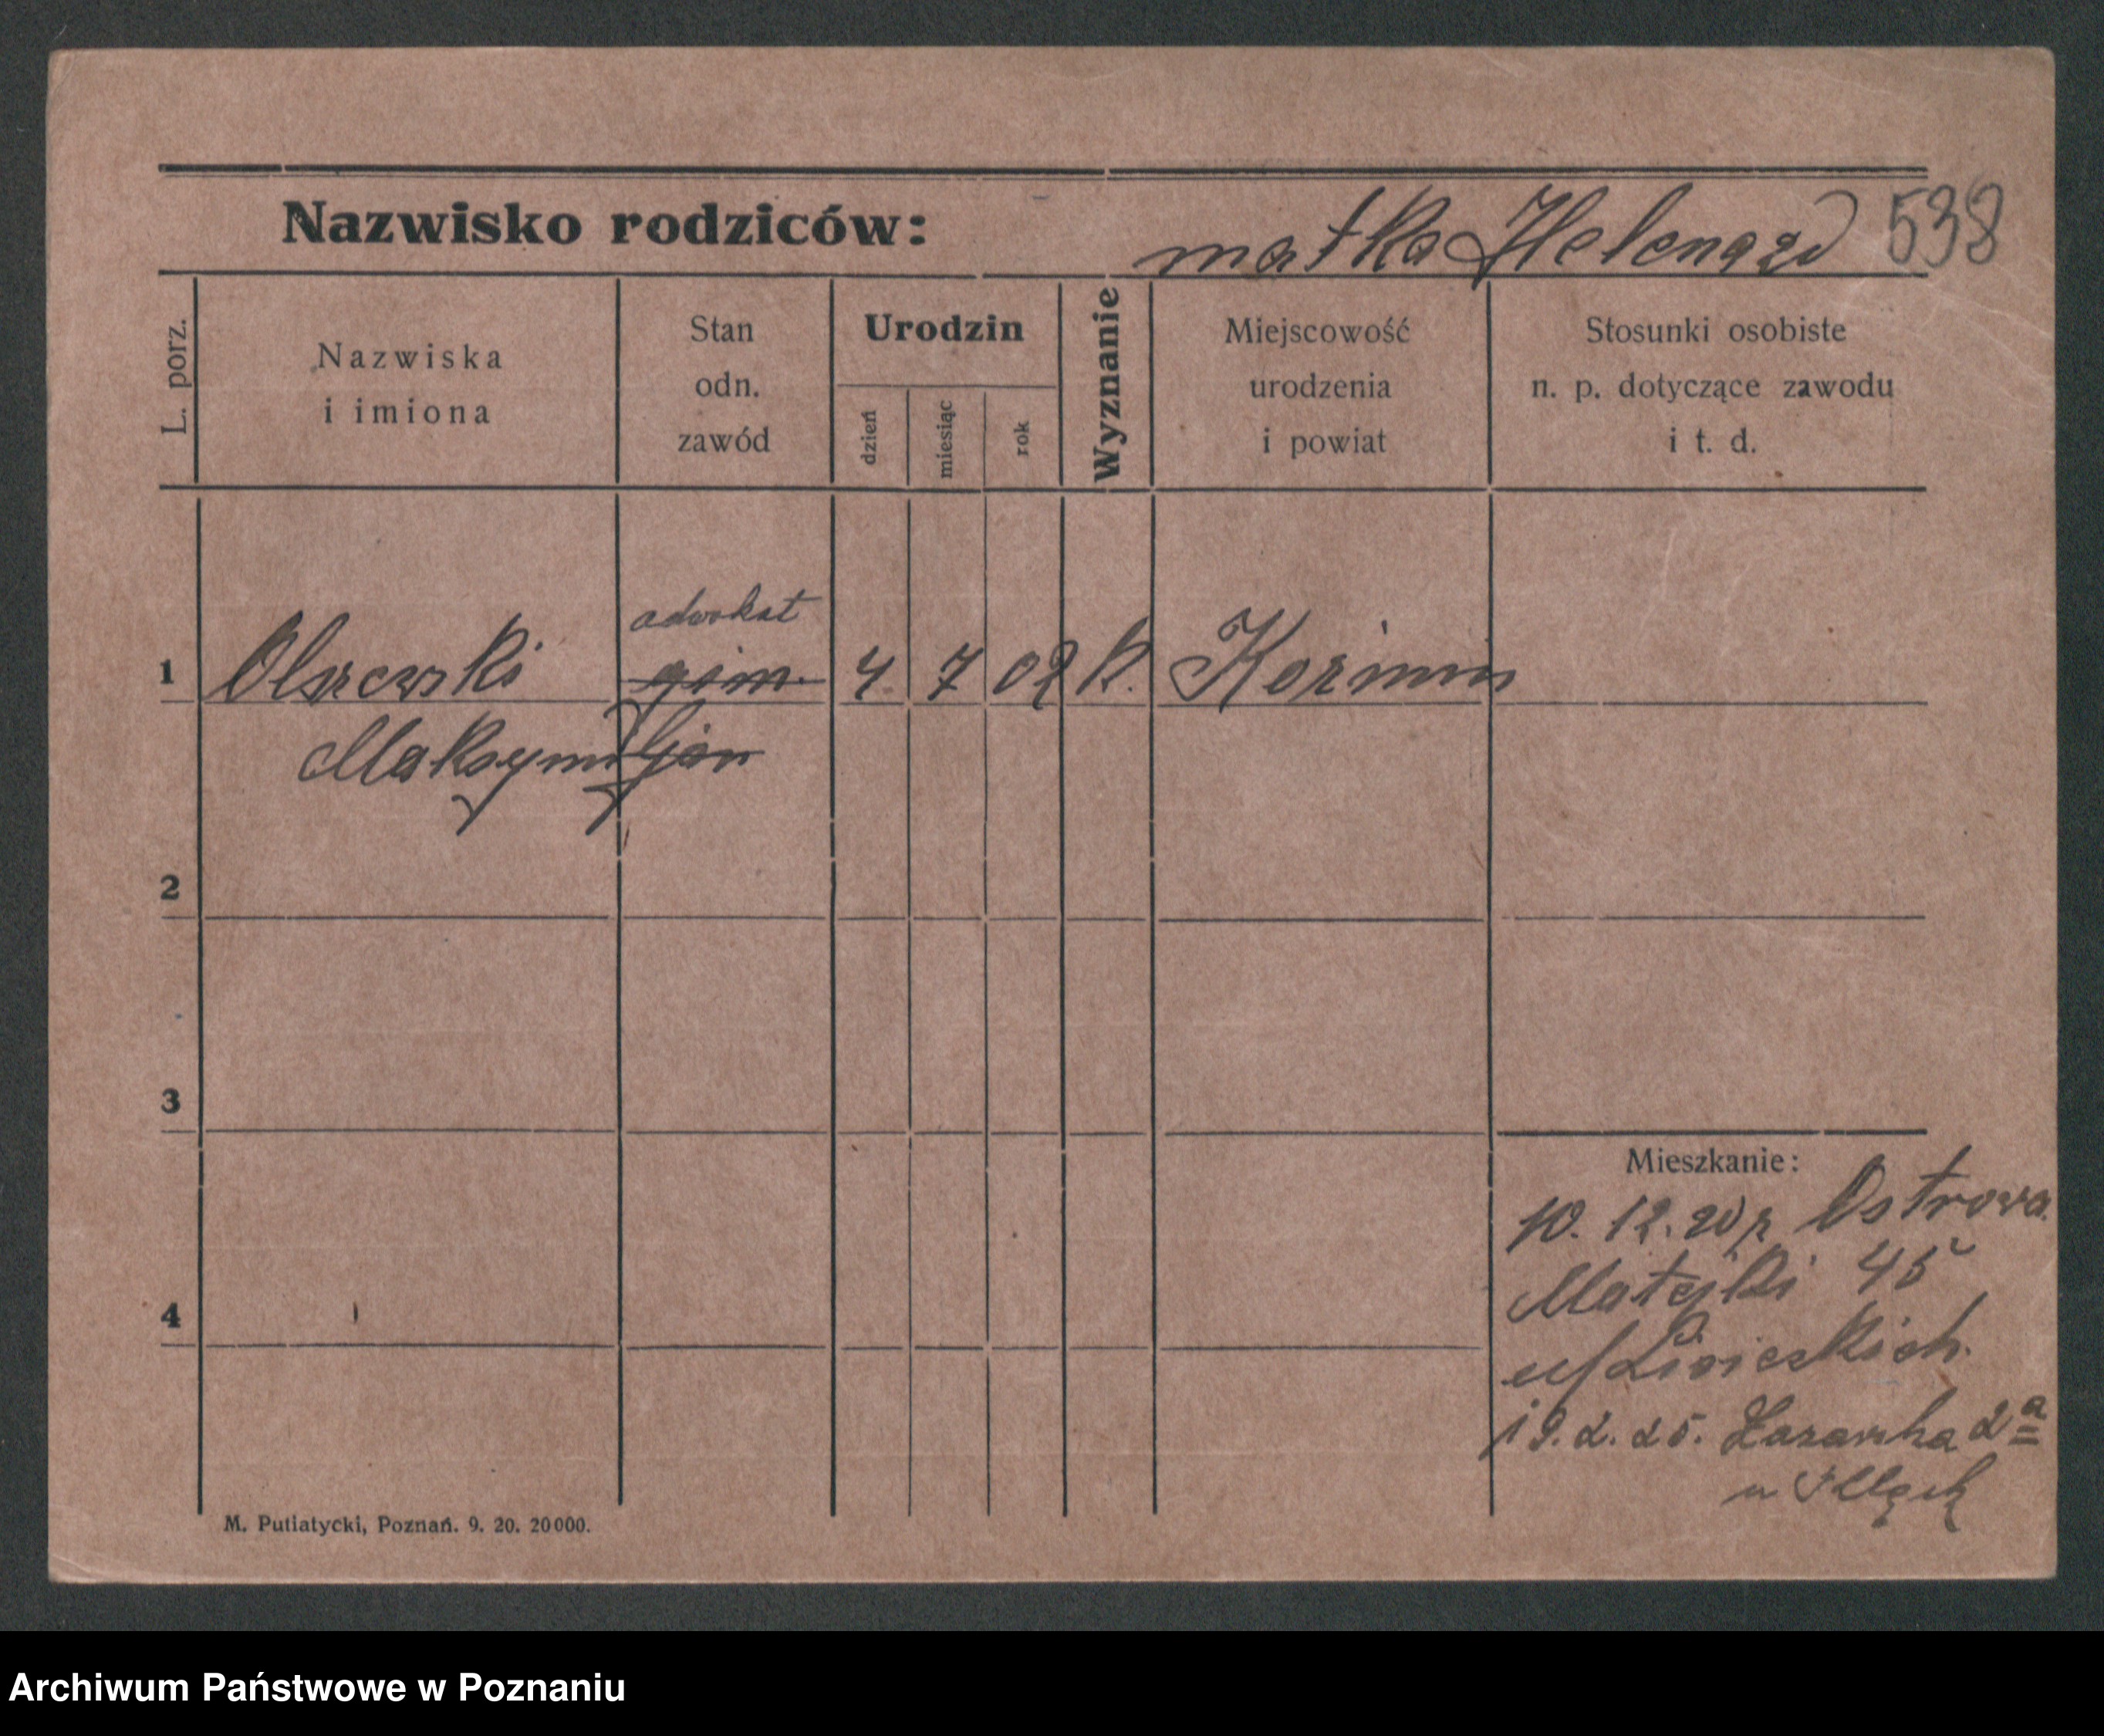 Nazwisko rodziców:
matka Helena 538
L. porz.
Nazwiska
i imiona
Stan
odn.
zawód
Urodzin
dzień
miesiąc
rok
Wyznanie
Miejscowość
urodzenia
i powiat
Stosunki osobiste
n. p. dotyczące zawodu
i t. d.
adwokat
1 Olszewski gim. 4. 7 02 k. Koźmin
Maksymiljan
2
3
4
Mieszkanie:
10. 12. 20 z Ostrowa.
Matejki 45
19. 2. 25.
M. Putiatycki, Poznań. 9. 20. 20000.
Archiwum Państwowe w Poznaniu